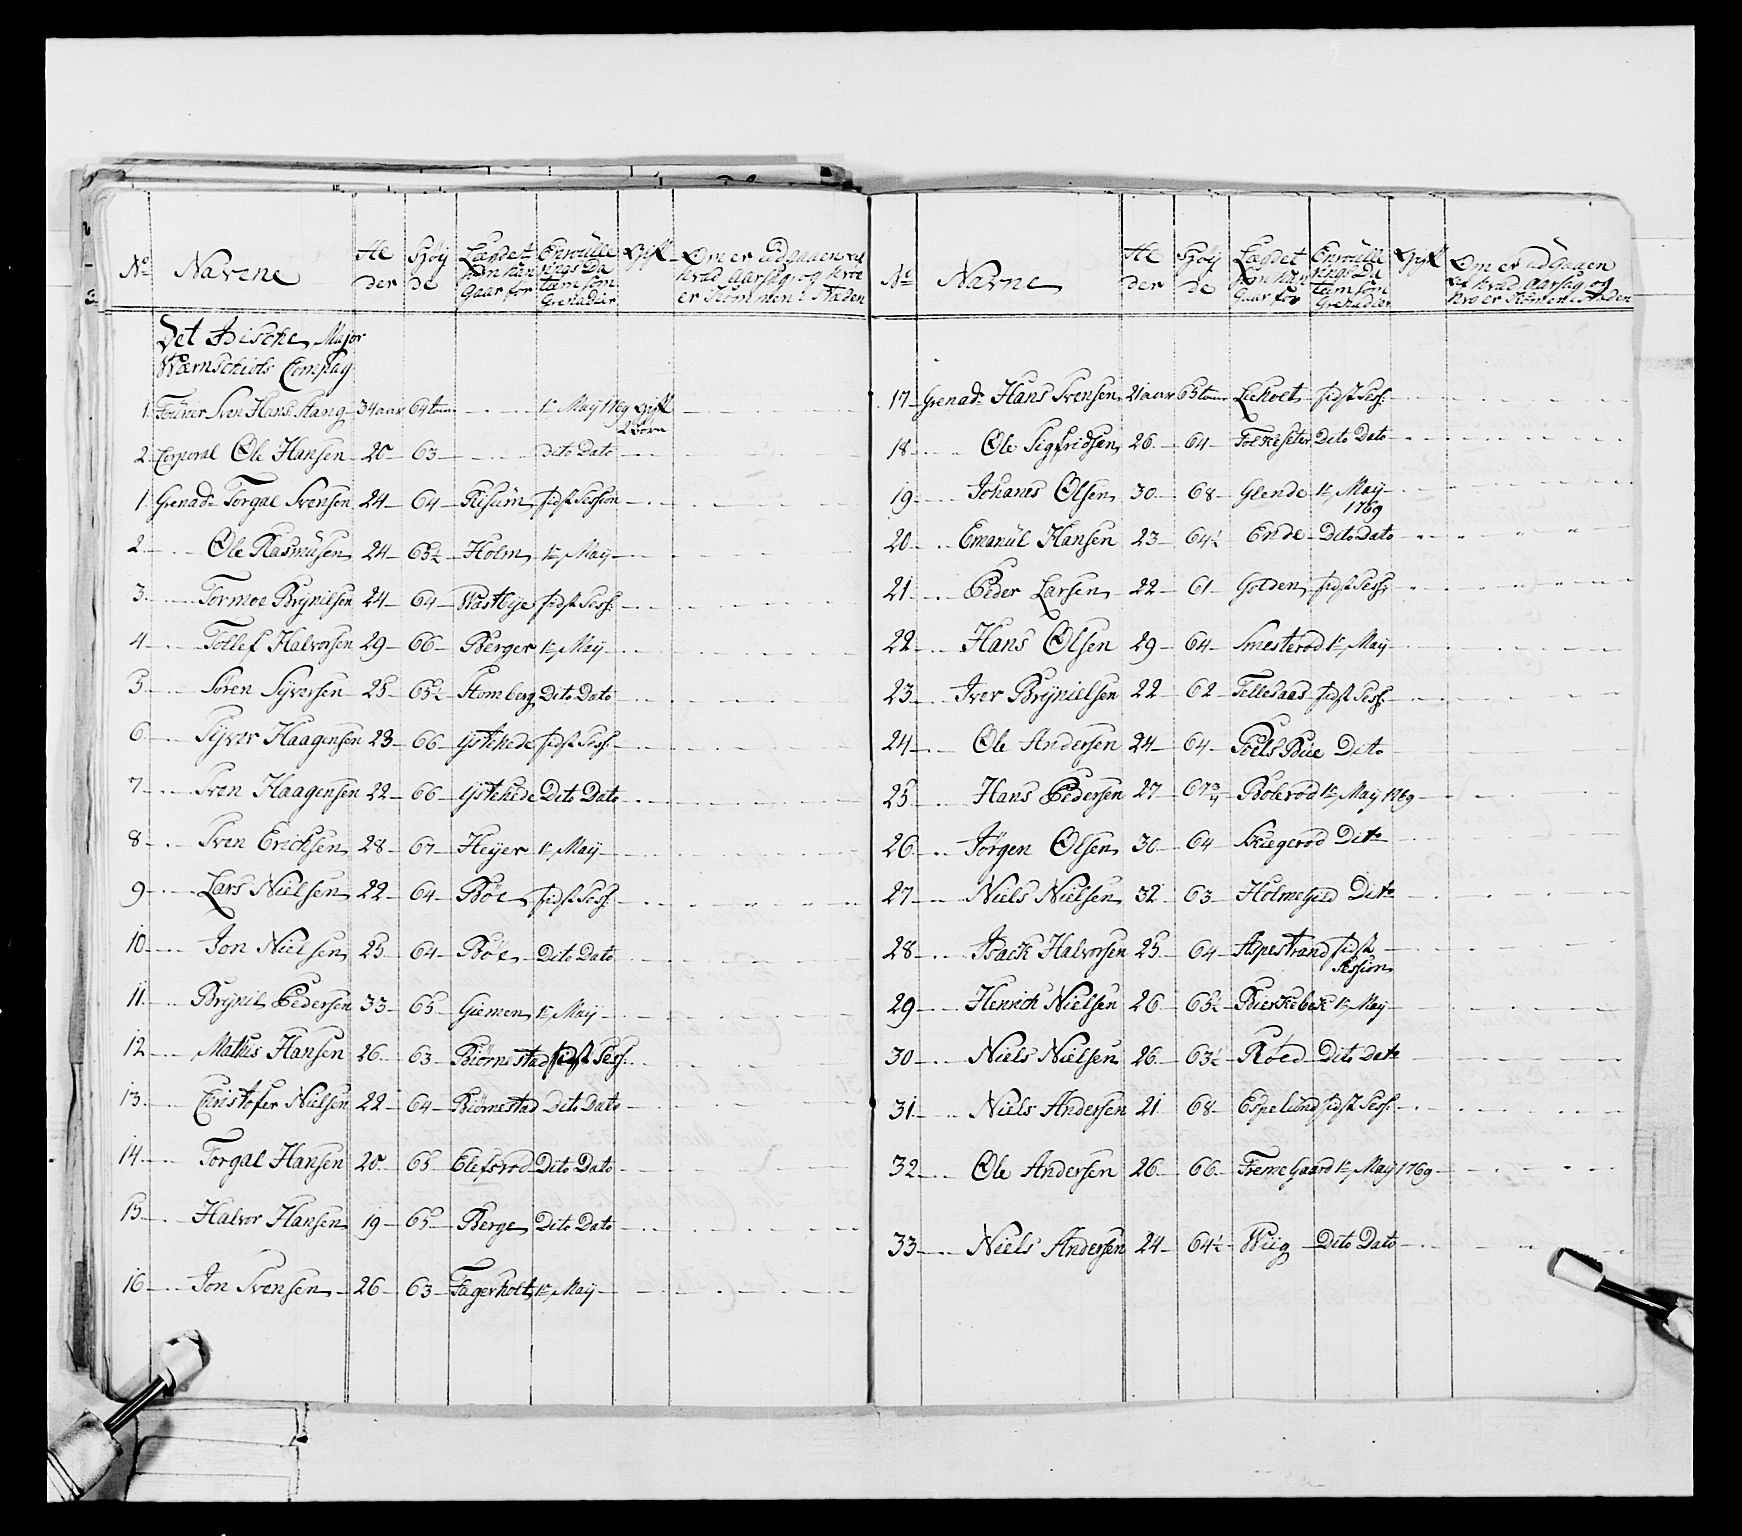 No Navne Al der Høy de Lægdet han kan Gaar for Enroulle rings Da tum som Grenadier Gift Om er udgauen ved hvad Aarsag og hvo er kommen i Staden
Det Miske Major
Wærnschiols Compag
1 Fourer Sven Hans. Stang 34 aar 64 tom 1te Maij 1769 Gift 2 børn
2 Corporal Ole Hansen 20 63 Dito Dato
1 Grenad. Torgal Svensen 24 64 Risum sidst Session
2 Ole Rasmusen 24 65½ Holm 1te Maij
3 Tormoe Brynilsen 24 64 Wastbye sidst Sess:
4 Tollef Halvorsen 29 66 Berger 1te Maij
5 Søren Syversen 25 65½ Stomberg Dito Dato
6 Syver Haagensen 23 66 Ystehede sidst Sess:
7 Sven Haagensen 22 66 Ystehede Dito Dato
8 Sven Ericksen 28 67 Heyer 1te Maij
9 Lars Nielsen 22 64 Bøe sidst Sess:
10 Jon Nielsen 25 64 Bøe Dito Dato
11 Brynil Pedersen 33 65 Giemen 1te Maij
12 Mathis Hansen 26 63 Biørnestad sidst Sess:
13 Christofer Nielsen 22 64 Biørnestad Dito Dato
14 Torgal Hansen 20 65 Elefsrod Dito Dato
15 Halvor Hansen 19 65 Berge Dito Dato
16 Jon Svensen 26 63 Fagerholt 1te Maij
No Navne Al der Høy de Lægdet han kan Gaar for Enroulle rings Da tum som Grenadier Gift Om er udgauen ved hvad Aarsag og hvo er kommen i Staden
17 Grenad. Hans Svensen 21 aar 65 tom Liholt sidst Sess:
18 Ole Sigfridsen 26 64 Folkeseter Dito Dato
19 Johanes Olsen 30 68 Glende 1te Maij 1769
20 Emanuel Hansen 23 64½ Ende Dito Dato
21 Peder Larsen 22 61 Golden sidst Sess:
22 Hans Olsen 29 64 Smesterod 1te Maij
23 Iver Brynielsen 22 62 Tellesaas sidst Sess:
24 Ole Andersen 24 64 Poels Bue Dito
25 Hans Pedersen 27 67¾ Bolerod 1te Maij 1769
26 Jørgen Olsen 30 64 Skiegerod Dito
27 Niels Nielsen 32 63 Holmegied Dito
28 Isack Halvorsen 25 64 Aspestrand sidst Session
29 Henrich Nielsen 26 65½ Bierkebek 1te Maij
30 Niels Nielsen 26 63½ Røed Dito Dato
31 Niels Andersen 21 68 Espelund sidst Sess:
32 Ole Andersen 26 66 Fremegaard 1te Maij 1769
33 Niels Andersen 24 64½ Wiig Dito Dato